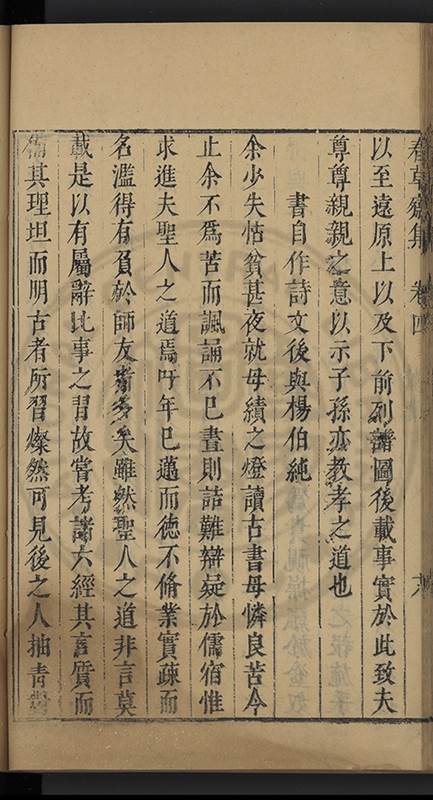 春草齋集 卷四
以至遠原上以及下前列譜圖後載事實於此致夫
尊尊親親之意以示子孫亦教孝之道也
書自作詩文後與楊伯純
余少失怙貧甚夜就母績之燈讀古書母憐良苦令
止余不爲苦而諷誦不已晝則詰難辯疑於儒宿惟
求進夫聖人之道焉吁年已邁而德不脩業實疎而
名濫得有負於師友者多矣雖然聖人之道非言莫
載是以有屬辭比事之冐故嘗考諸六經其言質而
備其理坦而明古者所習燦然可見後之人抽青